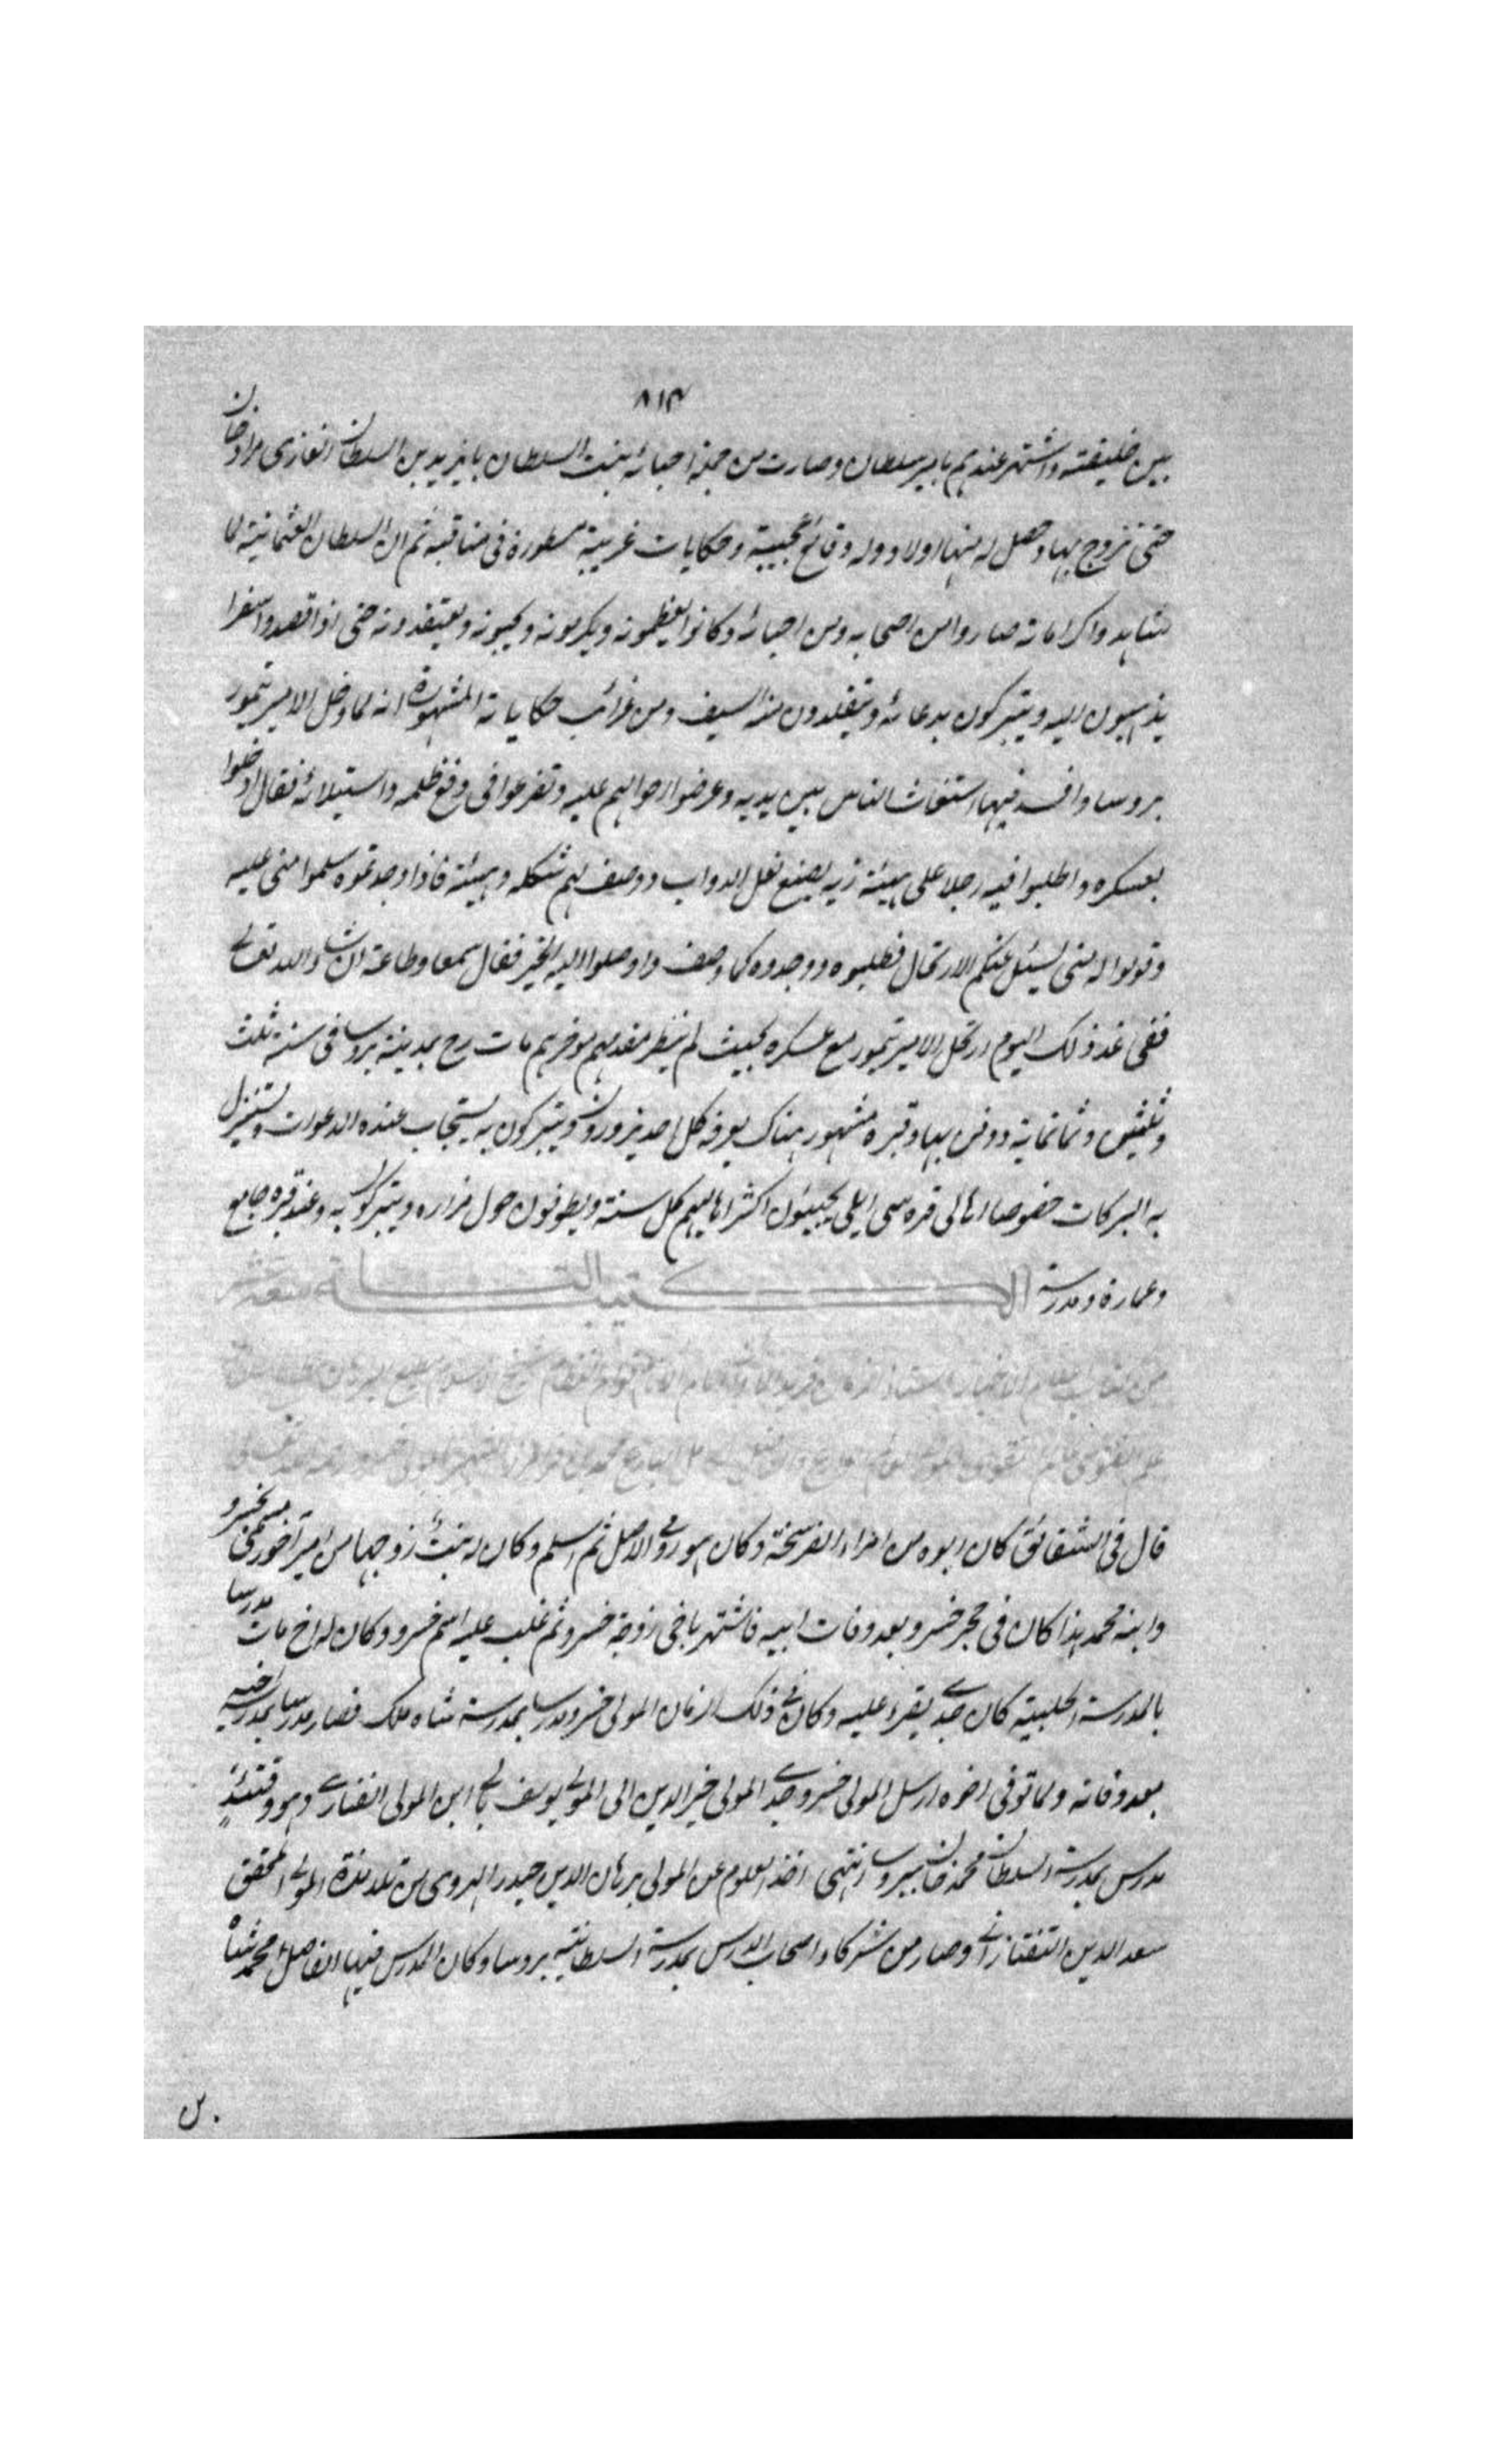 ٨١٣
بين خليفته واشتهر عندهم بامير سلطان وصارت من جملة احبائه بنت السلطان بايزيد بن السلطان الغازى مراد خان
حتى تزوج بها وحصل له منها اولاد وله وقائع عجيبة وحكايات غريبة مسطورة فى مناقبه ثم ان السلطان العثمانية لما
شاهدوا كراماته صاروا من اصحابه ومن احبائه وكانوا يعظمونه ويكرمونه ويحبونه ويعتقدونه حتى اذا قصدوا سفرا
يذهبون اليه ويتبركون بدعائه ويتقلدون منه السيف ومن غرائب حكاياته المشهورة انه لما دخل الامير تيمور
بروسا وافسد فيها استغاث الناس بين يديه وعرضوا احوالهم عليه وتضرعوا فى دفع ظلمه واستيلائه فقال ادخلوا
بعسكره واطلبوا فيه رجلا على هيئة زيه يصنع نعل الدواب ووصف لهم شكله وهيئة فاذا وجدتموه سلموا منى عليه
وقولوا له منى يسئل عنكم الارتحال فطلبوه ووجدوه كما وصف واوصلوا اليه الخبر فقال سمعا وطاعة ان شاء الله تعالى
ففى غد ذلك اليوم ارتحل الامير تيمور مع عسكره بحيث لم ينظر مقدمهم موخرهم مات رح بمدينة بروسا فى سنة ثلث
وثلثين وثمانماية ودفن بها وقبره مشهور هناك يعرفه كل احد يزورونه ويتبركون به يستجاب عنده الدعوات ويستنزل
به البركات خصوصا اهالى قره سى ايلى يجيئون اكثر اهاليهم كل سنة ويطوفون حول مزاره ويتبركون به وعند قبره جامع
وعمارة ومدرسة الكتيبة التاسعة عشر
قال فى الشقائق كان ابوه من امراء الفرسخة وكان هو رومى الاصل ثم اسلم وكان له بنت زوجها من امير آخر يسمى بخسرو
وابنه محمد هذا كان فى حجر خسرو بعد وفات ابيه فاشتهر باخى زوجة خسرو ثم غلب عليه اسم خسرو وكان له اخ مات مدرسا
بالمدرسة الحلبية كان جدى يقرء عليه وكان فى ذلك الزمان المولى خسرو مدرسا بمدرسة شاه ملك فصار مدرسا بمدرسة اخيه
بعد وفاته ولما توفى اخوه ارسل المولى خسرو جدى المولى خير الدين الى المولى يوسف بالى ابن المولى الفنارى وهو وقتئذ
مدرس بمدرسة السلطان محمد خان ببروسا انتهى اخذ العلوم عن المولى برهان الدين حيدر الهروى من تلامذة المولى المحقق
سعد الدين التفتازانى وصار من شركاء اصحاب الدرس بمدرسة السلطانية ببروسا وكان المدرس فيها الفاضل محمد شاه